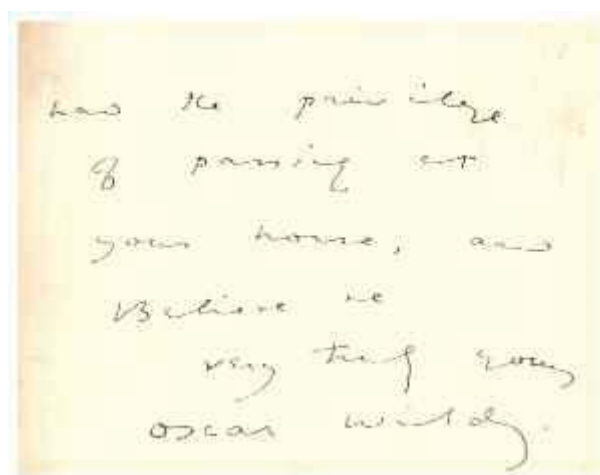 had the privilege
of passing at
your house, and
Believe me
very truly yours
Oscar Wilde.